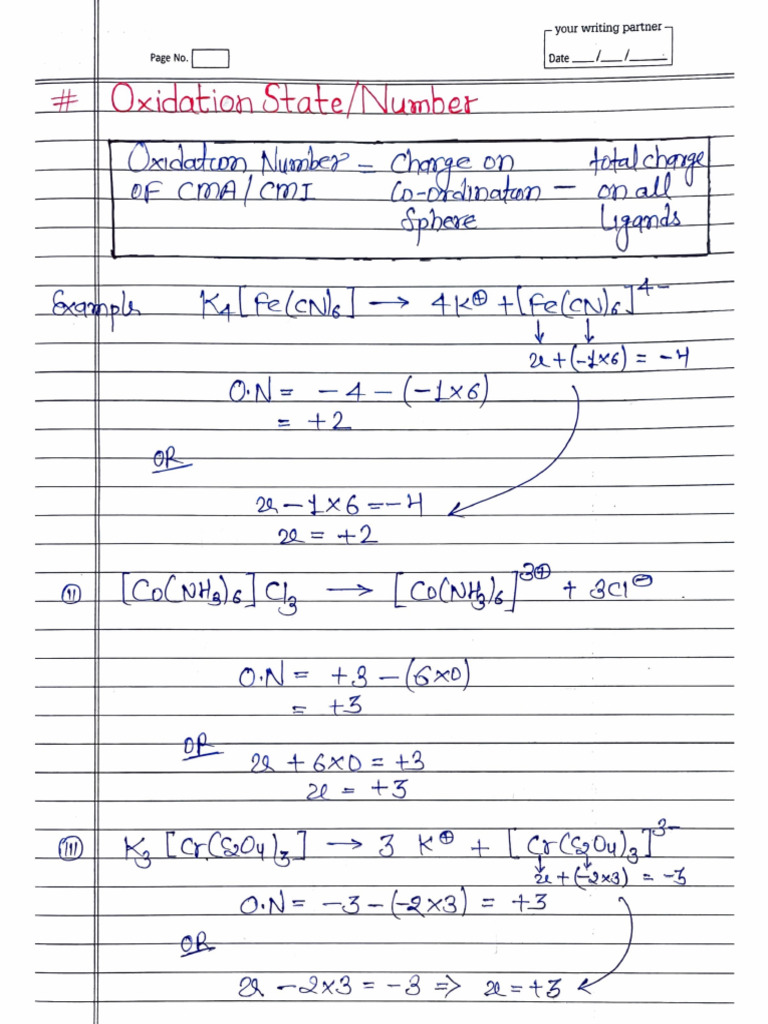 your writing partner
Page No.
Date ___/___/______
# Oxidation State/Number
Oxidation Number = Charge on total charge
OF CMA/CMI Co-ordination - on all
Sphere Ligands
Example K₄[Fe(CN)₆] → 4K⊕ + [Fe(CN)₆]⁴⁻
↓ ↓
x + (-1×6) = -4
O.N = -4 - (-1×6)
= +2
OR
x - 1×6 = -4
x = +2
(ii) [Co(NH₃)₆]Cl₃ → [Co(NH₃)₆]³⊕ + 3Cl⊖
O.N = +3 - (6×0)
= +3
OR
x + 6×0 = +3
x = +3
(iii) K₃[Cr(C₂O₄)₃] → 3 K⊕ + [Cr(C₂O₄)₃]³⁻
x + (-2×3) = -3
O.N = -3 - (-2×3) = +3
OR
x - 2×3 = -3 ⇒ x = +3